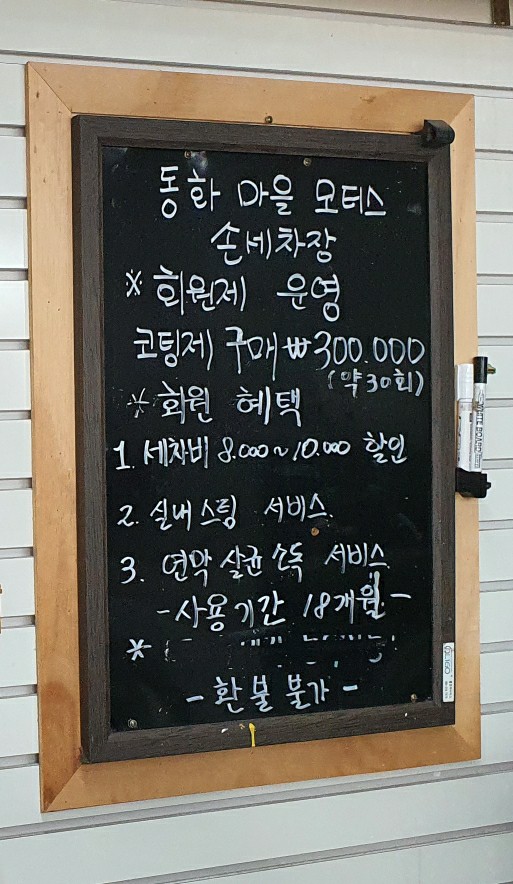 동화 마을 모터스
손세차장
※ 회원제 운영
코팅제 구매 ₩300.000
(약 30회)
※ 회원 혜택
1. 세차비 8.000~10.000 할인
2. 실내 스팀 서비스.
3. 연막 살균 소독 서비스
-사용기간 18개월-
*
- 환불 불가 -